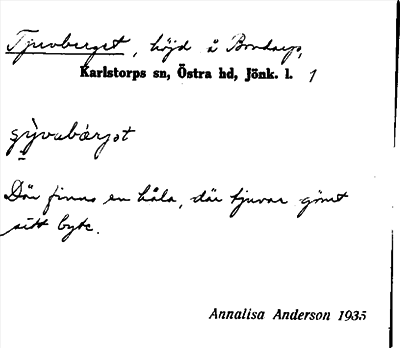 Tjuvberget, höjd å Brodarp,
Karlstorps sn, Östra hd, Jönk. l. 1
Där finns en håla, där tjuvar gömt
sitt byte.
Annalisa Anderson 1935